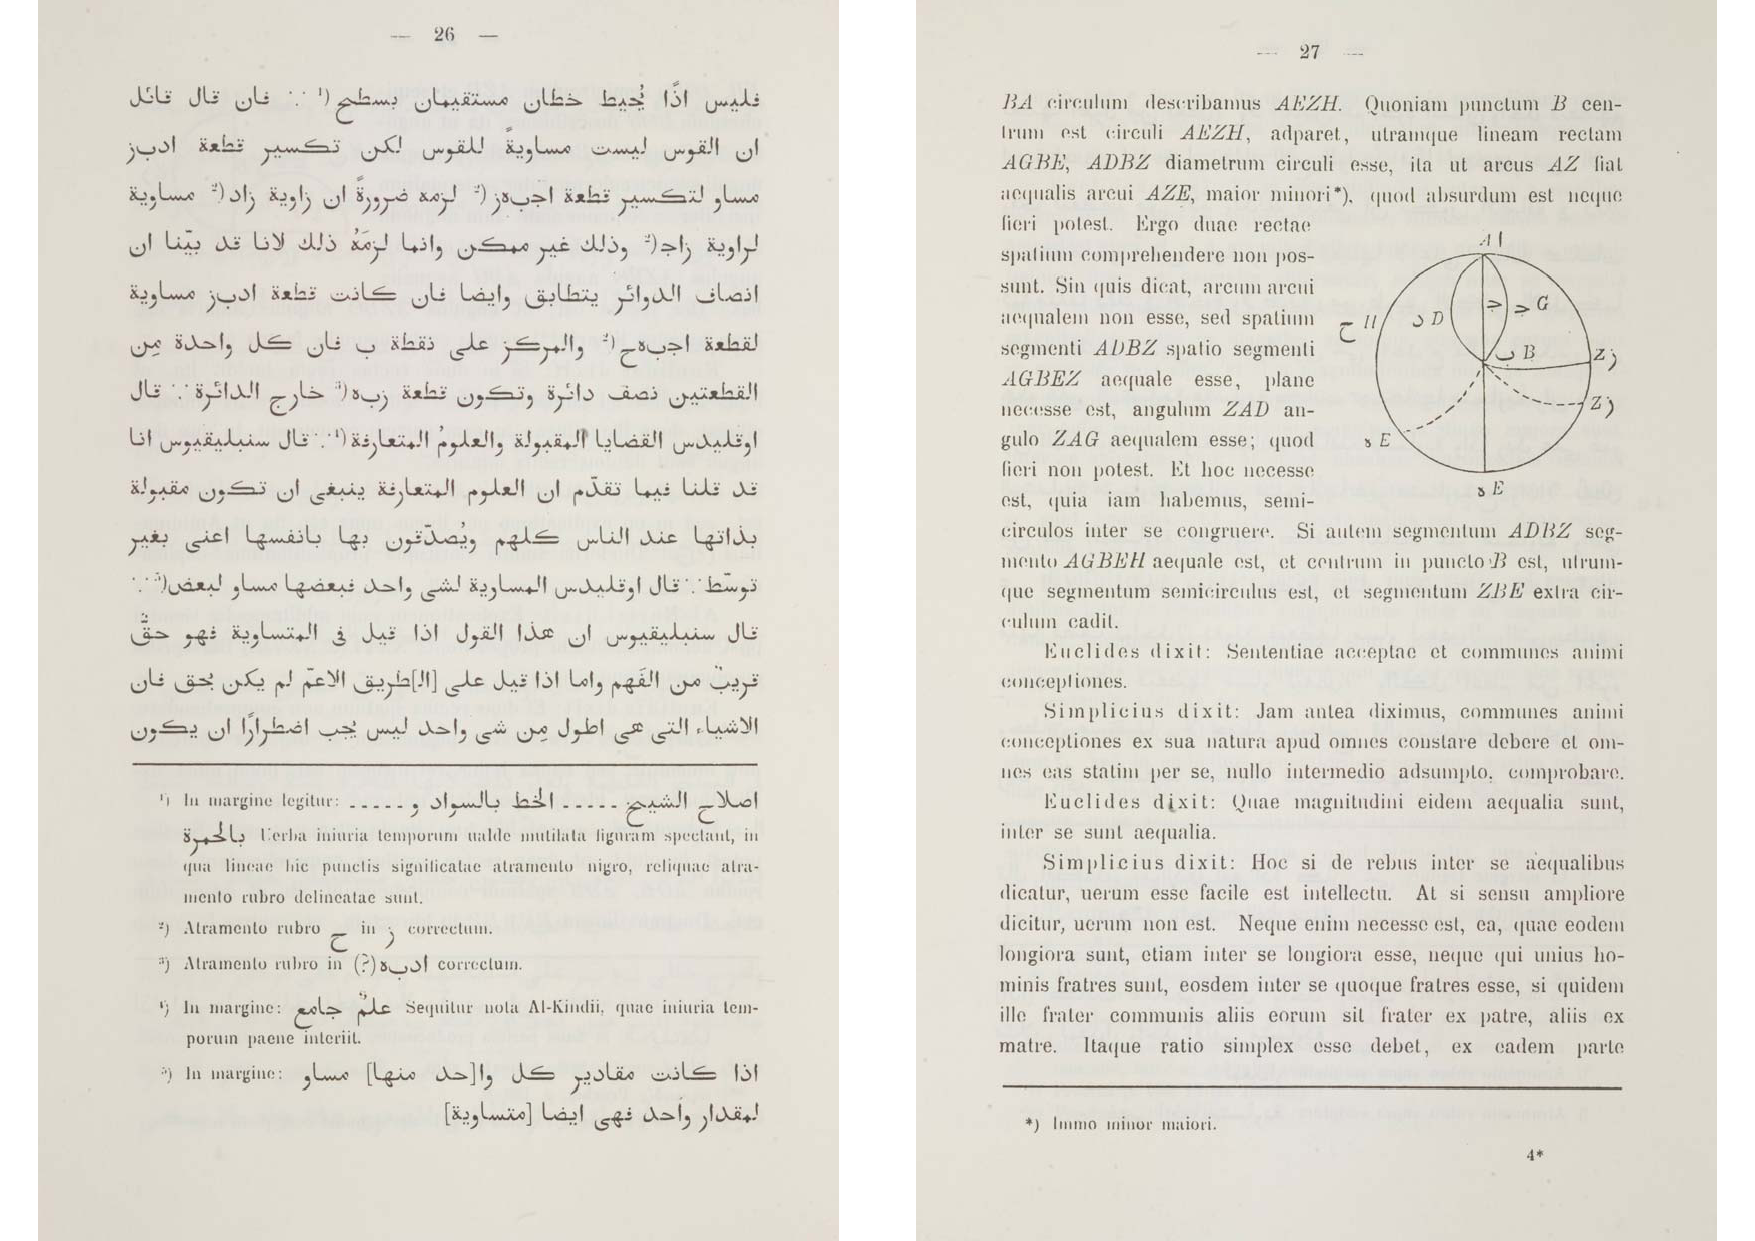 — 26 —
فليس اذًا يُحيط خطان مستقيمان بسطح(¹ ∵ فان قال قائل
ان القوس ليست مساويةً للقوس لكن تكسير قطعة ادبز
مساو لتكسير قطعة اجبهز(² لزمه ضرورةً ان زاوية زاد(² مساوية
لزاوية زاج(² وذلك غير ممكن وانما لزمَهُ ذلك لانا قد بيّنا ان
انصاف الدوائر يتطابق وايضا فان كانت قطعة ادبز مساوية
لقطعة اجبهح(² والمركز على نقطة ب فان كل واحدة مِن
القطعتين نصف دائرة وتكون قطعة زبه(³ خارج الدائرة ∵ قال
اوقليدس القضايا المقبولة والعلومُ المتعارفة(⁴ ∵ قال سنبليقيوس انا
قد قلنا فيما تقدّم ان العلوم المتعارفة ينبغى ان تكون مقبولة
بذاتها عند الناس كلهم ويُصدّقون بها بانفسها اعنى بغير
توسّط ∵ قال اوقليدس المساوية لشى واحد فبعضها مساو لبعض(⁵ ∵
قال سنبليقيوس ان هذا القول اذا قيل فى المتساوية فهو حقٌّ
قريبٌ من الفَهم واما اذا قيل على [ال]طريق الاعمّ لم يكن بحق فان
الاشياء التى هى اطول مِن شى واحد ليس يُجب اضطرارًا ان يكون
¹) In margine legitur: اصلاح الشيخ ..... الخط بالسواد و .....
بالحمرة Uerba iniuria temporum ualde mutilata figuram spectant, in
qua lineae hic punctis significatae atramento nigro, reliquae atra-
mento rubro delineatae sunt.
²) Atramento rubro ح in ز correctum.
³) Atramento rubro in (?) ادبه correctum.
⁴) In margine: علمٌ جامع Sequitur nota Al-Kindii, quae iniuria tem-
porum paene interiit.
⁵) In margine: اذا كانت مقادير كل وا[حد منها] مساو
لمقدار واحد فهى ايضا [متساوية]
— 27 —
BA circulum describamus AEZH. Quoniam punctum B cen-
trum est circuli AEZH, adparet, utramque lineam rectam
AGBE, ADBZ diametrum circuli esse, ita ut arcus AZ fiat
aequalis arcui AZE, maior minori*), quod absurdum est neque
fieri potest. Ergo duae rectae
spatium comprehendere non pos-
sunt. Sin quis dicat, arcum arcui
aequalem non esse, sed spatium
segmenti ADBZ spatio segmenti
AGBEZ aequale esse, plane
necesse est, angulum ZAD an-
gulo ZAG aequalem esse; quod
fieri non potest. Et hoc necesse
est, quia iam habemus, semi-
circulos inter se congruere. Si autem segmentum ADBZ seg-
mento AGBEH aequale est, et centrum in puncto B est, utrum-
que segmentum semicirculus est, et segmentum ZBE extra cir-
culum cadit.
A ا
ح H
د D
ج ج G
ب B
Z ز
Z ز
ه E
ه E
Euclides dixit: Sententiae acceptae et communes animi
conceptiones.
Simplicius dixit: Jam antea diximus, communes animi
conceptiones ex sua natura apud omnes constare debere et om-
nes eas statim per se, nullo intermedio adsumpto, comprobare.
Euclides dixit: Quae magnitudini eidem aequalia sunt,
inter se sunt aequalia.
Simplicius dixit: Hoc si de rebus inter se aequalibus
dicatur, uerum esse facile est intellectu. At si sensu ampliore
dicitur, uerum non est. Neque enim necesse est, ea, quae eodem
longiora sunt, etiam inter se longiora esse, neque qui unius ho-
minis fratres sunt, eosdem inter se quoque fratres esse, si quidem
ille frater communis aliis eorum sit frater ex patre, aliis ex
matre. Itaque ratio simplex esse debet, ex eadem parte
*) Immo minor maiori.
4*